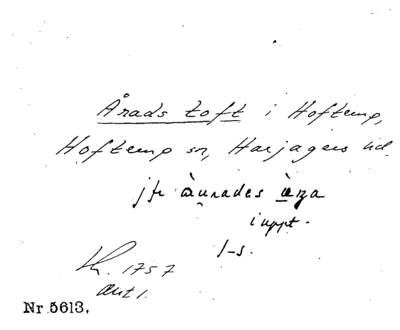 Årads toft i Hofterup,
Hofterup sn, Harjagers hd.
jfr àu̯rades
i uppt.
1757
akt 1.
Nr 5613.